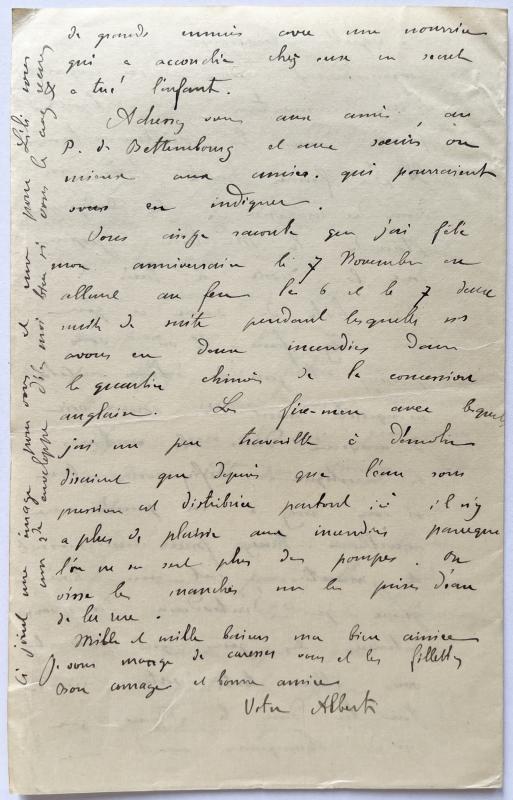 de grands ennuis avec une nourrice
qui a accouché chez eux en secret
a tué l'enfant.
Adressez vous aux amis, au
P. de Bettembourg et aux sœurs ou
mieux aux amies qui pourraient
vous en indiquer.
Vous ai-je raconté que j'ai fêté
mon anniversaire le 7 Novembre en
allant au feu le 6 et le 7 deux
nuits de suite pendant lesquelles ns
avons eu deux incendies dans
le quartier chinois de la concession
anglaise. Les fire-men avec lesquels
j'ai un peu travaillé à démolir
disaient que depuis que l'eau sous
pression est distribuée partout ici il n'y
a plus de plaisir aux incendies parceque
l'on ne se sert plus des pompes. On
visse les manches sur les prises d'eau
de la rue.
Mille et mille baisers ma bien aimée
Je vous mange de caresses vous et les fillettes
bonne amie
Votre Albert
Ci joint une image pour vous et une pour Lili sous
une 2de enveloppe dites moi bien si vous les avez reçues